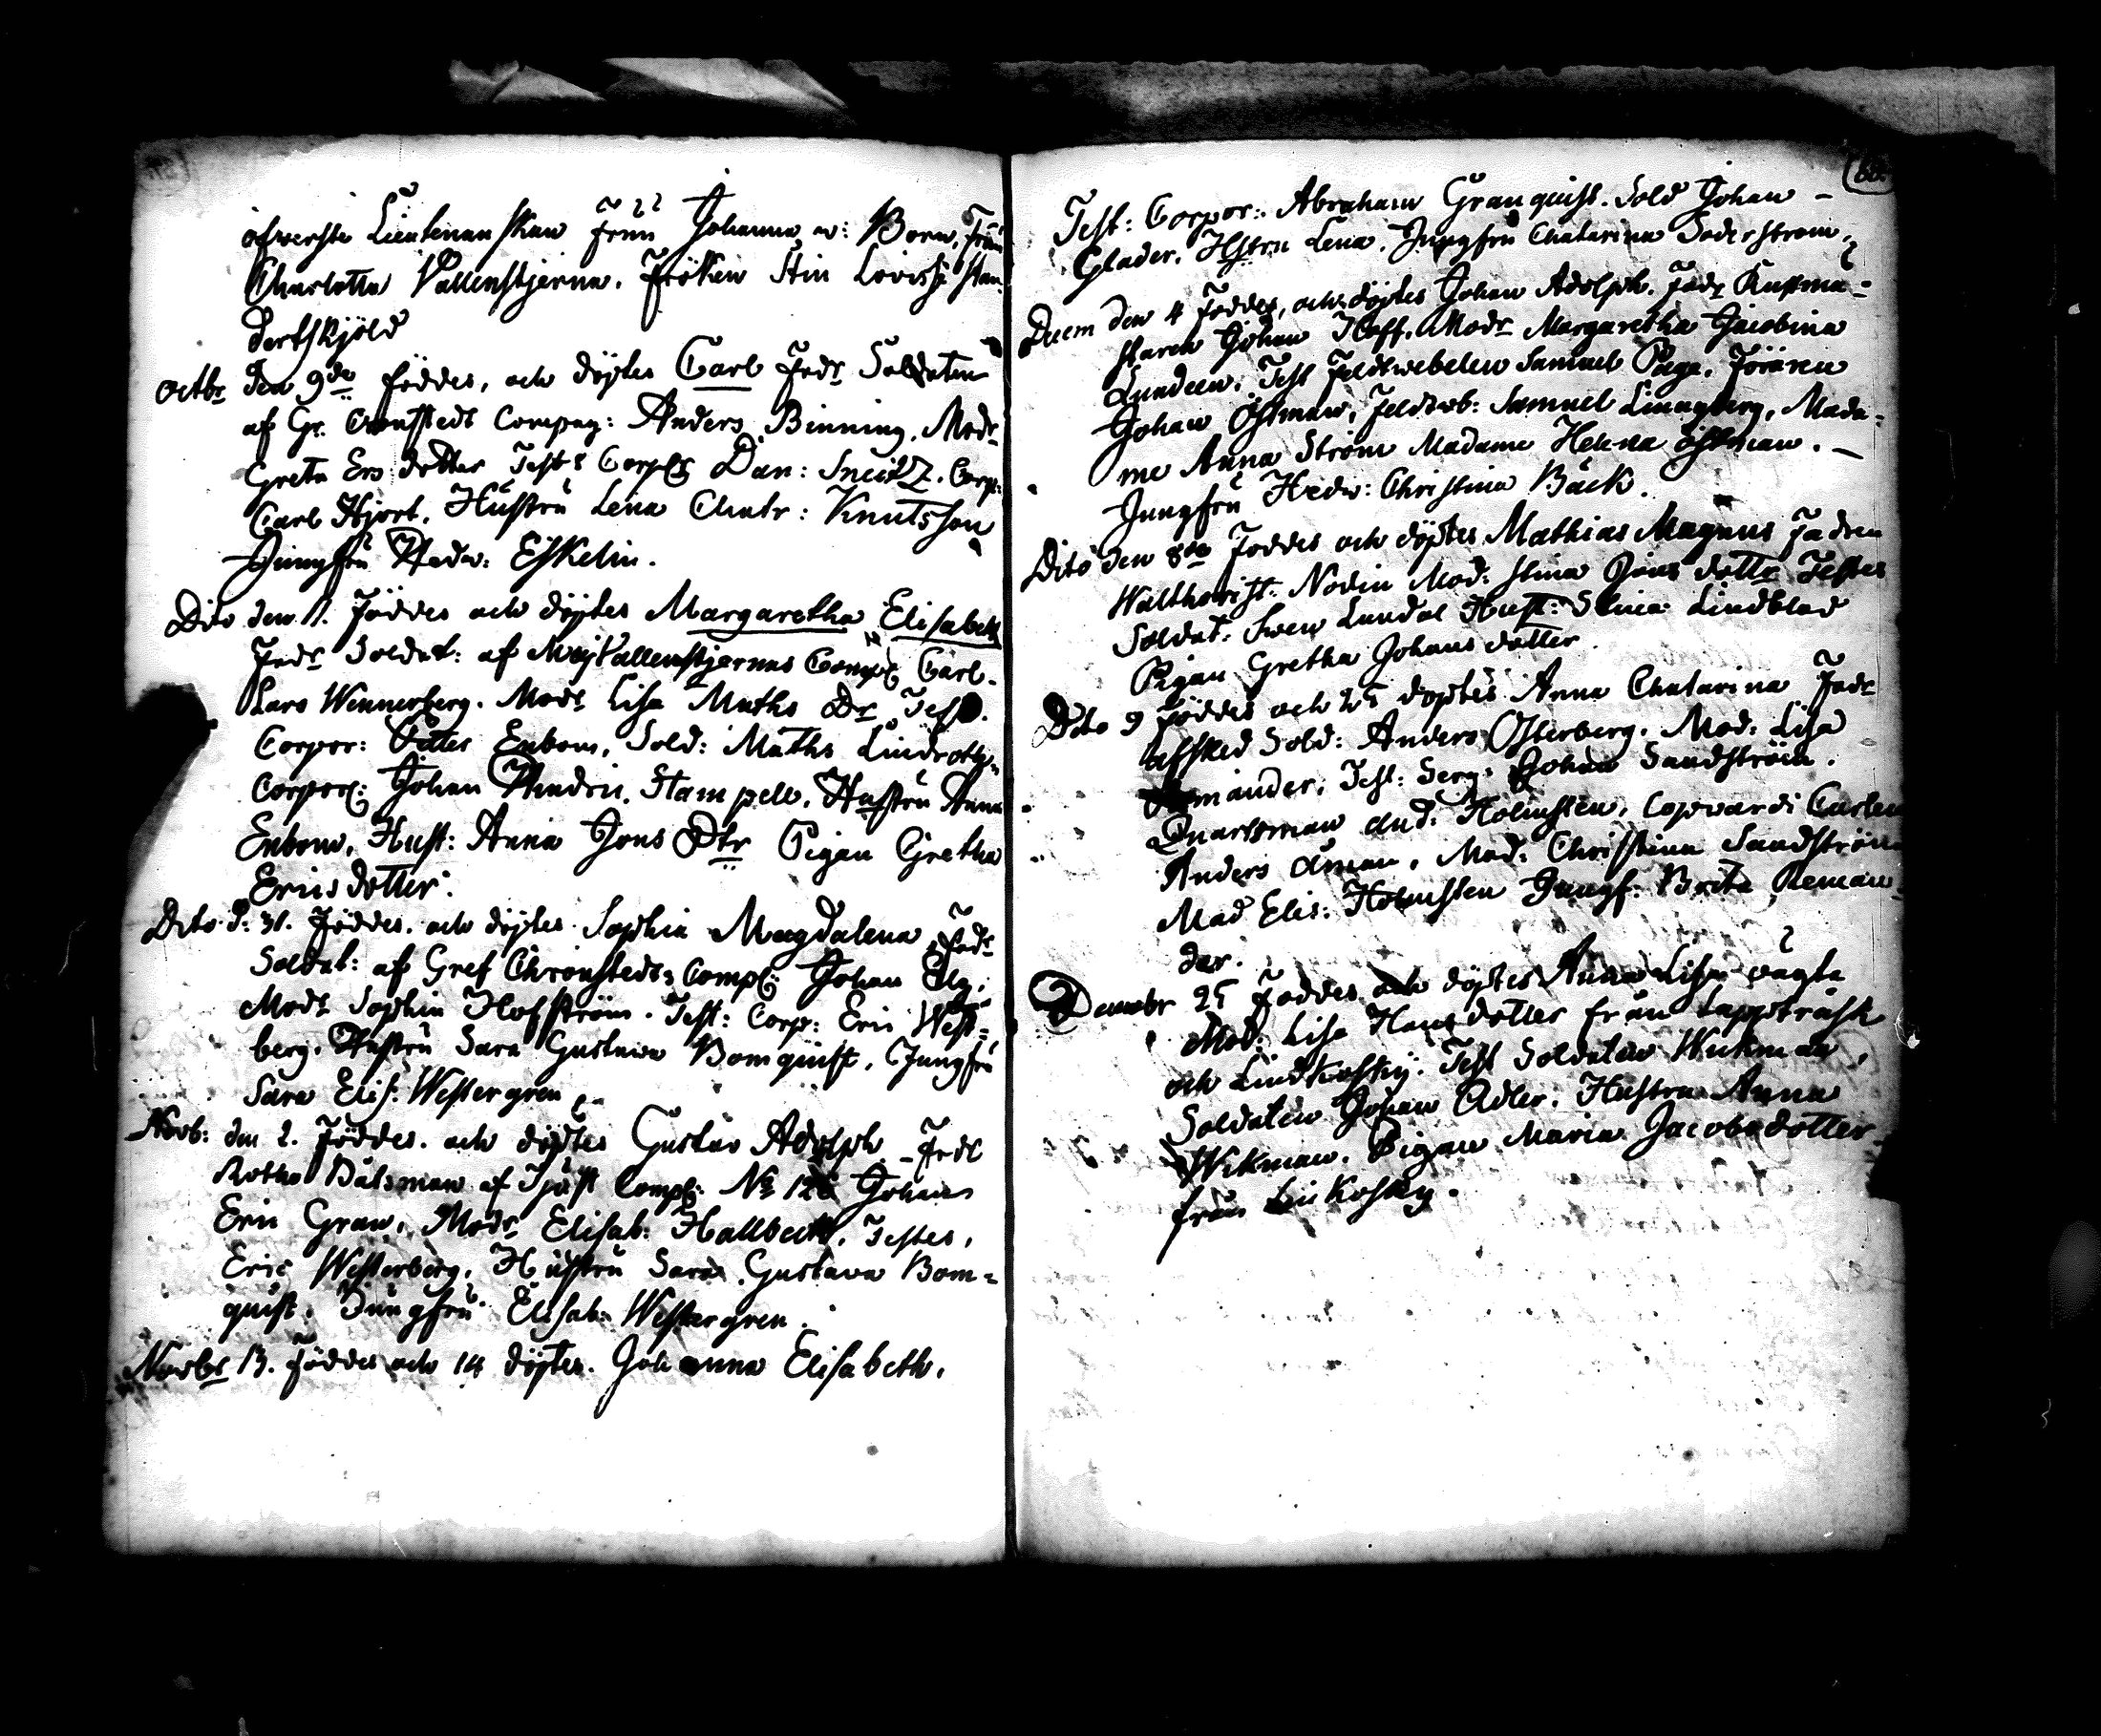 öfwerste Lieutenanskan Fru Johanna v: Born, Fru
Charlotta Pallenstjerna. Fröken Stin Lovisa Stan-
dertskjöld
Octbr Den 9de föddes, och döptes Carl Fadr Soldaten
af Gr. Cronstedt Compag: Anders Binning. Modr
Greta Ers dotter Test: Corpl Dan: Corp:
Carl Hjort. Hustru Lena Chatr: Knutsson
Jungfru Hedv: Eskelin.
Dito den 11. Föddes och döptes Margaretha Elisabeth
Fadr Soldat: af Maj Pallenstjernas Comp: Carl
Lars Wennerberg. Modr Lisa Maths Dr Test.
Corpor: Petter Enbom, Sold: Maths Lindroth,
Corpor: Johan Hindric Stampell. Hustru Anna
Enbom, Hust: Anna Jons Dtr Pigan Gretha
Ericsdotter.
Dito d: 31. Föddes. och döptes Sophia Magdalena, Fadr
Soldat: af Gref Chronstedts Comp: Johan Elg.
Modr Sophia Hofström. Test: Corp: Eric West-
berg. Hustru Sara Gustava Bomquist, Jungfru
Sara Elis: Westergren
Novb: den 2. Föddes. och döptes Gustav Adolph. Fadr
Rothe Båtsman af Tjust Comp: No 126 Johan
Eric Gran, Modr Elisab: Hallbeck, Testes,
Eric Westerberg, Hustru Sara Gustava Bom-
quist. Jungfru Elisab: Westergren.
Novbr 13. Föddes och 14 döptes. Johanna Elisabeth.
60.
Test: Corpor: Abraham Granquist. Sold Johan
Glader. Hstru Lena. Jungfru Chatarina Soderstrom,
Decem den 4 Föddes, och döptes Johan Adolph. Fadr Rustmä-
staren Johan Hoff, Modr Margaretha Jacobina
Lundeen. Test Feldtwebelen Samuel Page. Föraren
Johan Östman, Feldtwb: Samuel Linngberg, Mada-
me Anna Ström Madame Helena Östman.
Jungfru Hedv: Christina Bäck.
Dito den 8de Föddes och döptes Mathias Magnus Fadren
Walthorist: Nodin Mod: Stina Jöns dottr Testes
Soldat: Swen Lundal Hust: Stina Lindblad
Pigan Gretha Johans dotter.
Dito 9 Föddes och 25 döptes Anna Chatarina Fadr
afsked Sold: Anders Österberg. Mod. Lisa
mander. Test: Serg: Johan Sandström.
Qvartsman And: Holmsten, Copvardi Carlen
Anders Åman, Mad: Christina Sandström
Mad Elis: Holmsten Jungf: Brita Reman-
der.
Decembr 25 Föddes och döptes Anna Lisa oägta
Mod: Lisa Hans dotter från Lappträsk
och Lindkoskij. Test Soldaten Wikman,
Soldaten Johan Adler. Hustru Anna
Wikman. Pigan Maria Jacobsdotter
från Linkosky.